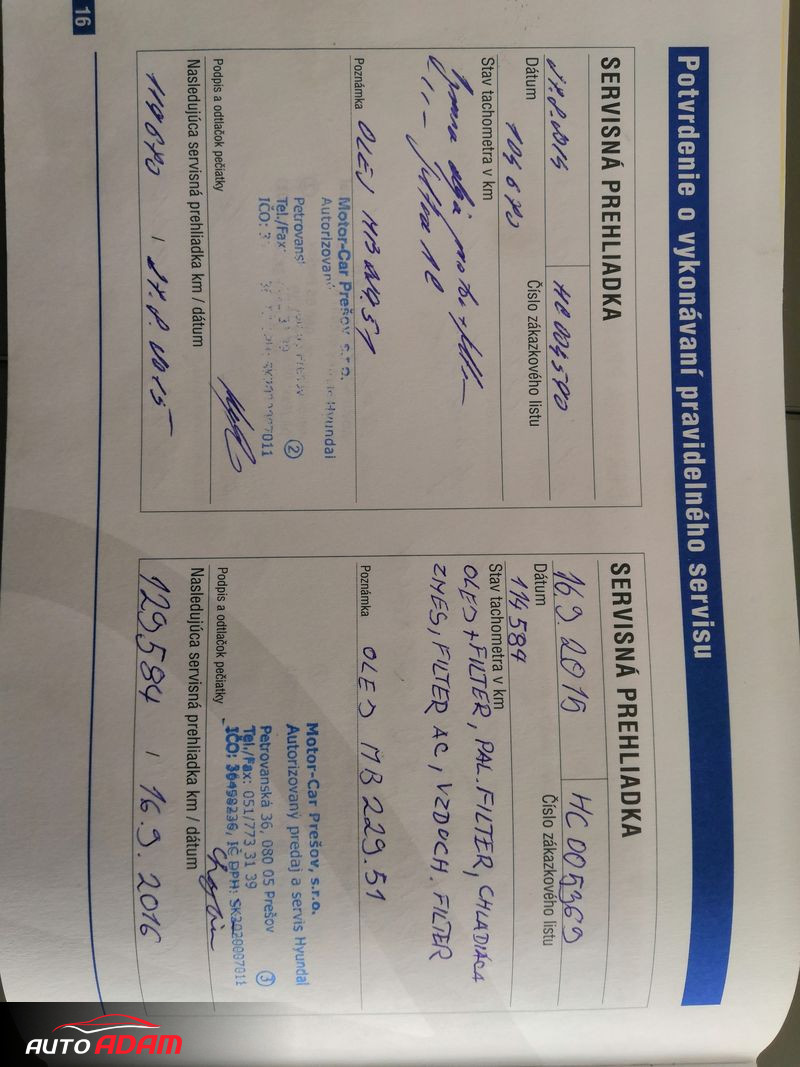 Potvrdenie o vykonávaní pravidelného servisu
SERVISNÁ PREHLIADKA
HC004590
Dátum
Číslo zákazkového listu
104 670
Stav tachometra v km
Poznámka OLEJ MB 229.51
Motor-Car Prešov, s.r.o.
Autorizovaný Hyundai
Petrovans
Tel./Fax
IČO: 3
2
Podpis a odtlačok pečiatky
Nasledujúca servisná prehliadka km / dátum
119670 / 2015
SERVISNÁ PREHLIADKA
16.9.2015 HC005369
Dátum
Číslo zákazkového listu
114584
Stav tachometra v km
OLEJ + FILTER, PAL. FILTER, CHLADIACA
ZMES, FILTER AC, VZDUCH. FILTER
Poznámka OLEJ MB 229.51
Motor-Car Prešov, s.r.o.
Autorizovaný predaj a servis Hyundai
Petrovanská 36, 080 05 Prešov
Tel./Fax: 051/773 31 39
IČO: 36498236, IČ DPH: SK2020007011
3
Podpis a odtlačok pečiatky
Nasledujúca servisná prehliadka km / dátum
129584 / 16.9.2016
16
AUTO ADAM